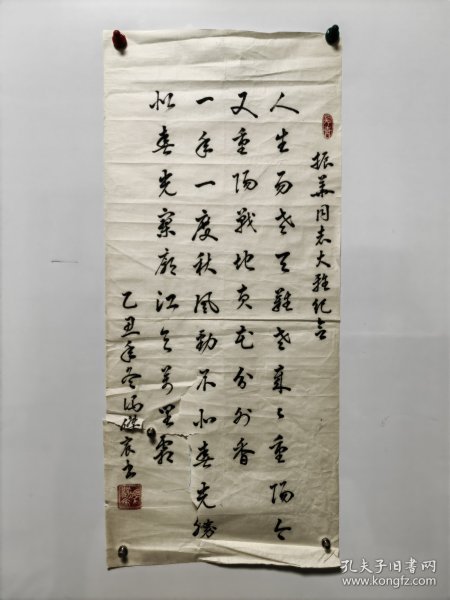 振华同志大雅纪念
人生易老天难老岁々重阳今
又重阳战地黄花分外香
一年一度秋风劲不似春光胜
似春光寥廓江天万里霜
乙丑年冬
书
孔夫子旧书网
www.kongfz.com